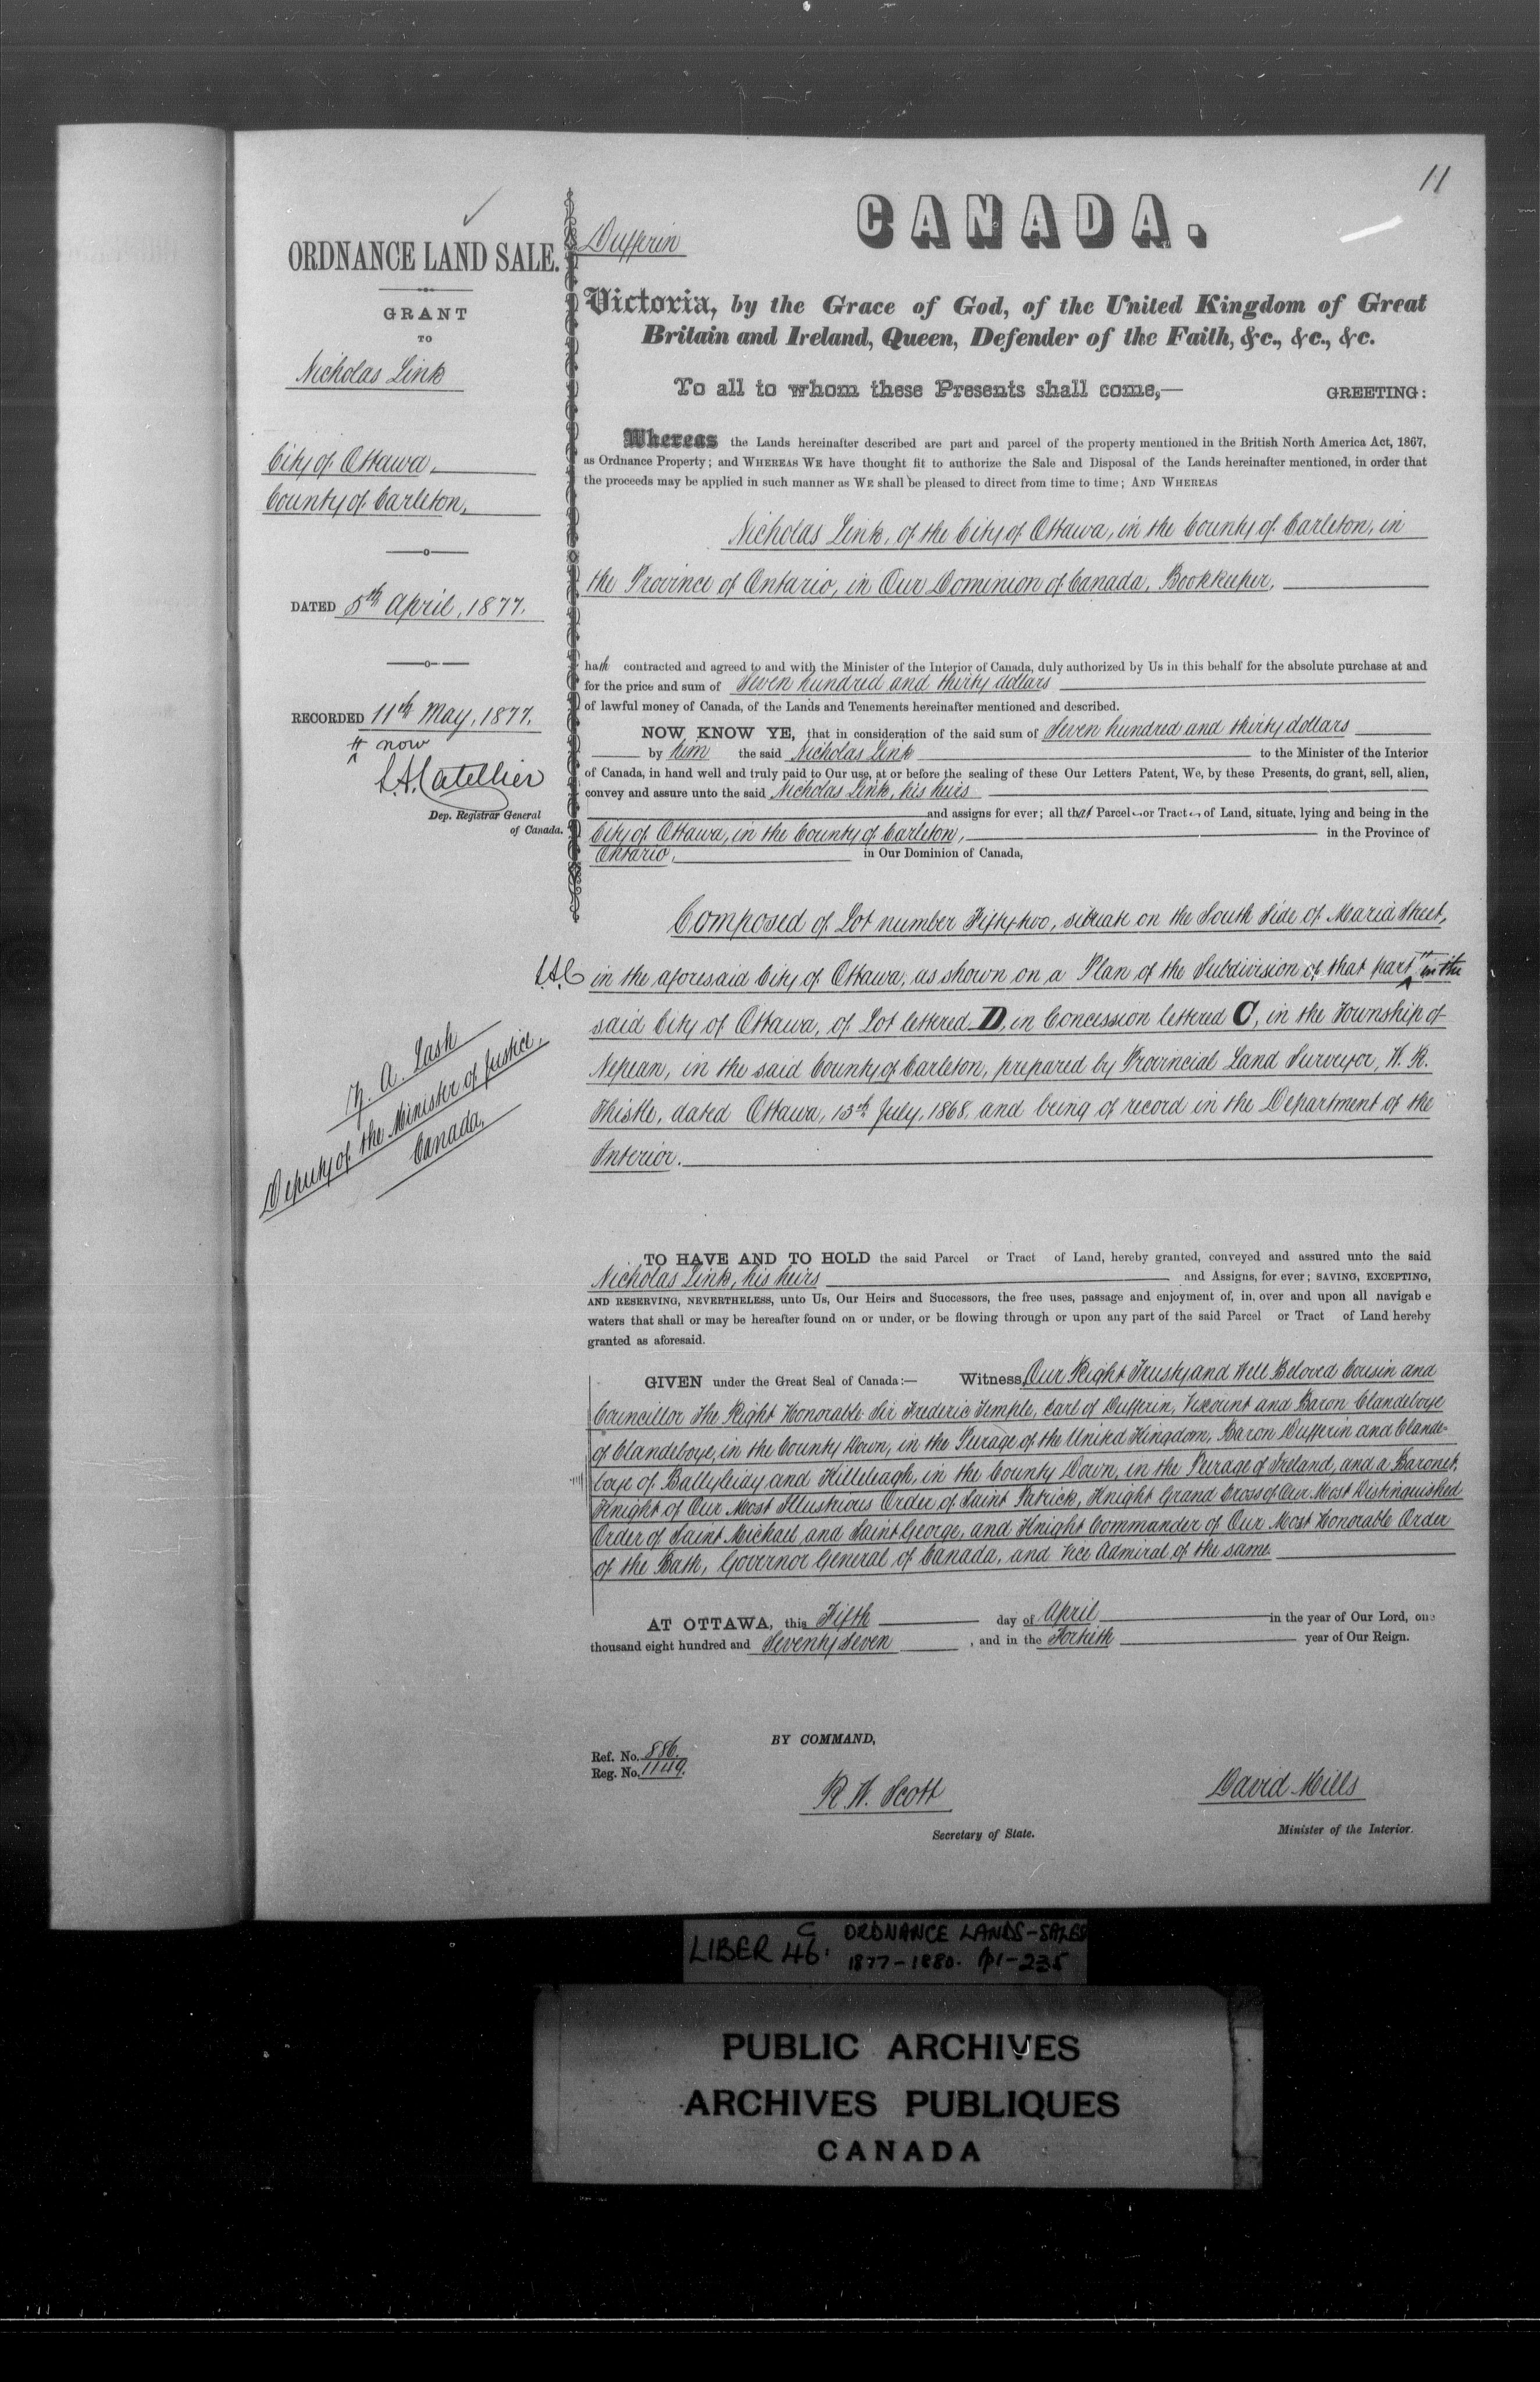 11
ORDNANCE LAND SALE.
GRANT
TO
Nicholas Link
City of Ottawa,
County of Carleton,
DATED 5th April, 1877.
RECORDED 11th May, 1877.
# now
L.A. Catellier
Dep. Registrar General
of Canada.
L.A.C
Z. A. Lash
Deputy of the Minister of Justice,
Canada.
Dufferin
CANADA.
Victoria, by the Grace of God, of the United Kingdom of Great
Britain and Ireland, Queen, Defender of the Faith, &c., &c., &c.
To all to whom these Presents shall come,— GREETING:
Whereas the Lands hereinafter described are part and parcel of the property mentioned in the British North America Act, 1867,
as Ordnance Property; and WHEREAS WE have thought fit to authorize the Sale and Disposal of the Lands hereinafter mentioned, in order that
the proceeds may be applied in such manner as WE shall be pleased to direct from time to time; AND WHEREAS
Nicholas Link, of the City of Ottawa, in the County of Carleton, in
the Province of Ontario, in Our Dominion of Canada, Bookkeeper,
hath contracted and agreed to and with the Minister of the Interior of Canada, duly authorized by Us in this behalf for the absolute purchase at and
for the price and sum of Seven hundred and thirty dollars
of lawful money of Canada, of the Lands and Tenements hereinafter mentioned and described.
NOW KNOW YE, that in consideration of the said sum of Seven hundred and thirty dollars
by him the said Nicholas Link to the Minister of the Interior
of Canada, in hand well and truly paid to Our use, at or before the sealing of these Our Letters Patent, We, by these Presents, do grant, sell, alien,
convey and assure unto the said Nicholas Link, his heirs
and assigns for ever; all that Parcel or Tract of Land, situate, lying and being in the
City of Ottawa, in the County of Carleton, in the Province of
Ontario, in Our Dominion of Canada,
Composed of Lot number Fifty-two, situate on the South Side of Maria Street,
in the aforesaid City of Ottawa, as shown on a Plan of the Subdivision of that part # in the
said City of Ottawa, of Lot lettered D, in Concession lettered C, in the Township of
Nepean, in the said County of Carleton, prepared by Provincial Land Surveyor, W. R.
Thistle, dated Ottawa, 15th July, 1868, and being of record in the Department of the
Interior.
TO HAVE AND TO HOLD the said Parcel or Tract of Land, hereby granted, conveyed and assured unto the said
Nicholas Link, his heirs and Assigns, for ever; SAVING, EXCEPTING,
AND RESERVING, NEVERTHELESS, unto Us, Our Heirs and Successors, the free uses, passage and enjoyment of, in, over and upon all navigab e
waters that shall or may be hereafter found on or under, or be flowing through or upon any part of the said Parcel or Tract of Land hereby
granted as aforesaid.
GIVEN under the Great Seal of Canada:— Witness, Our Right Trusty and Well Beloved Cousin and
Councillor The Right Honorable Sir Frederic Temple, Earl of Dufferin, Viscount and Baron Clandeboye
of Clandeboye, in the County Down, in the Peerage of the United Kingdom, Baron Dufferin and Clande-
boye of Ballyleidy and Killeleagh, in the County Down, in the Peerage of Ireland, and a Baronet,
Knight of Our Most Illustrious Order of Saint Patrick, Knight Grand Cross of Our Most Distinguished
Order of Saint Michael and Saint George, and Knight Commander of Our Most Honorable Order
of the Bath, Governor General of Canada, and Vice Admiral of the same.
AT OTTAWA, this Fifth day of April in the year of Our Lord, one
thousand eight hundred and Seventy Seven, and in the Fortieth year of Our Reign.
BY COMMAND,
Ref. No. 886.
Reg. No. 1149.
R. W. Scott
Secretary of State.
David Mills
Minister of the Interior.
LIBER 46. C ORDNANCE LANDS-SALES
1877-1880. p1-235
PUBLIC ARCHIVES
ARCHIVES PUBLIQUES
CANADA